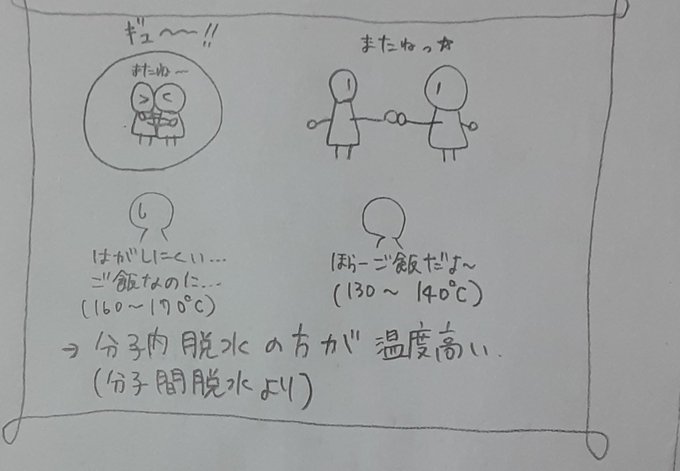 ギュ〜〜!!
またねっ☆
またね〜
はがしにくい…
ご飯なのに…
(160〜170℃)
ほらーご飯だよ〜
(130〜140℃)
→ 分子内脱水の方が温度高い.
(分子間脱水より)